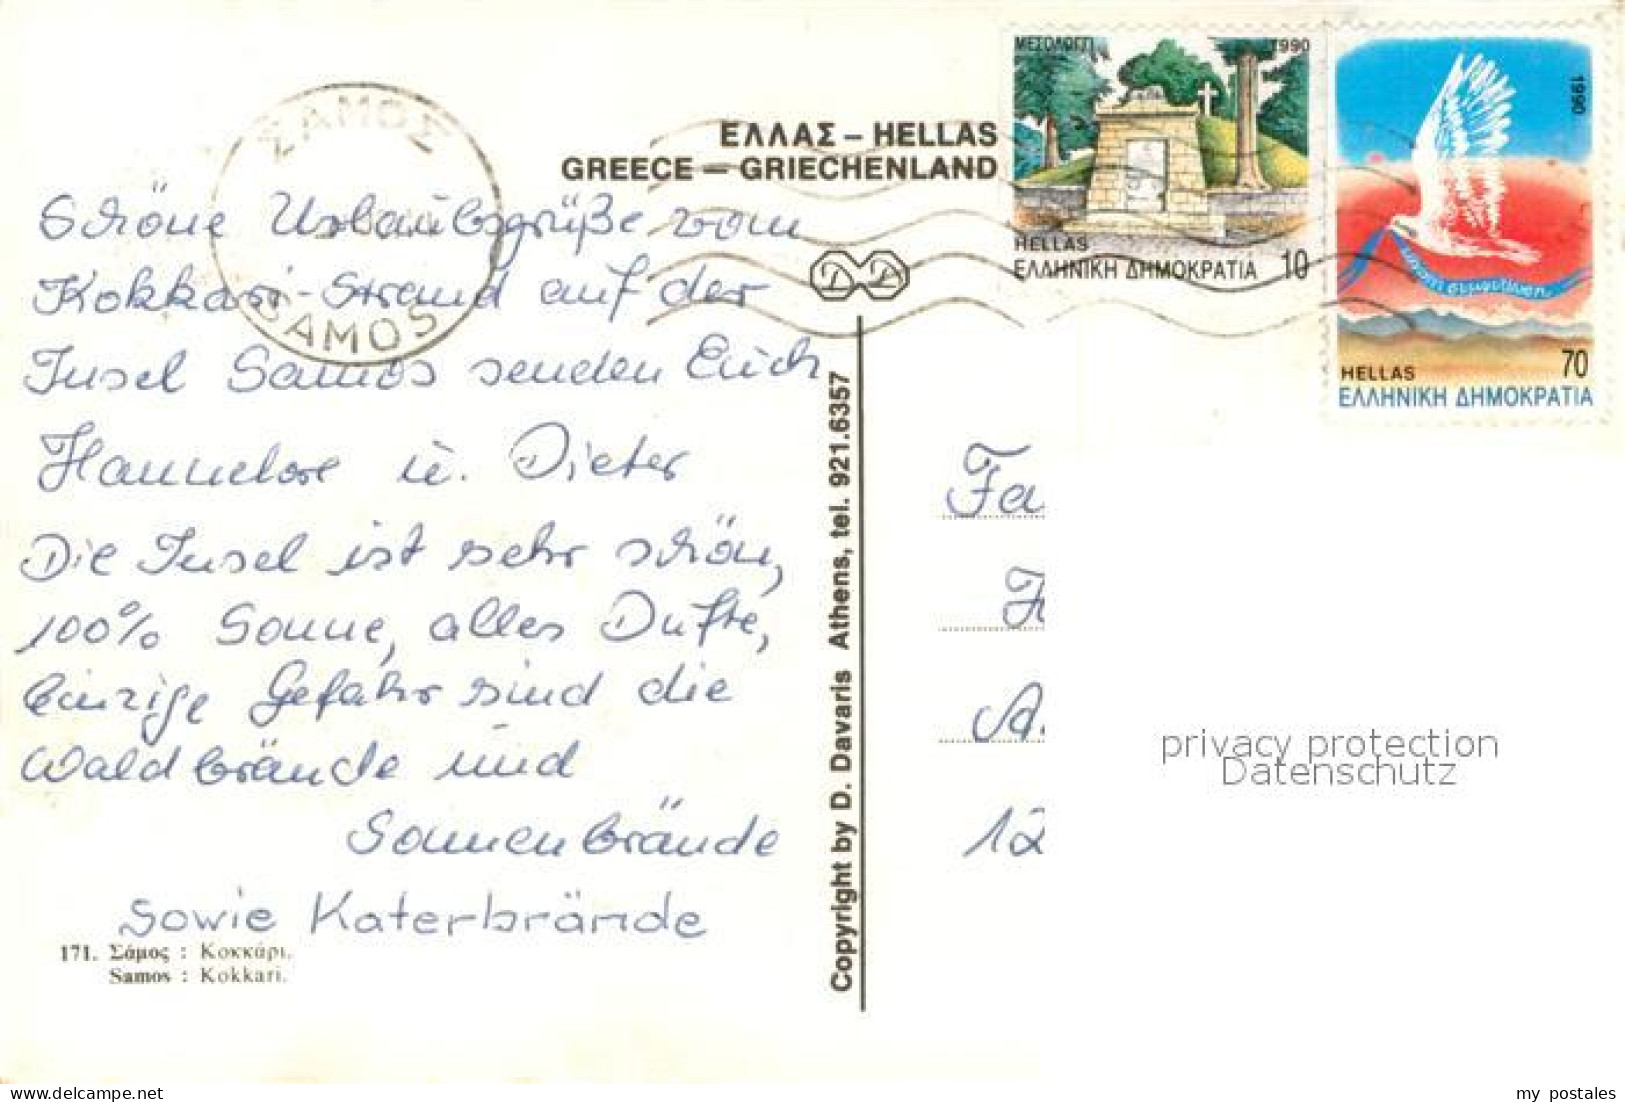 ΣΑΜΟΣ
SAMOS
ΕΛΛΑΣ – HELLAS
GREECE – GRIECHENLAND
ΜΕΣΟΛΟΓΓΙ 1990
HELLAS
ΕΛΛΗΝΙΚΗ ΔΗΜΟΚΡΑΤΙΑ 10
1990
HELLAS 70
ΕΛΛΗΝΙΚΗ ΔΗΜΟΚΡΑΤΙΑ
Schöne Urlaubsgrüße vom
Kokkari-Strand auf der
Insel Samos senden Euch
Hannelore u. Dieter
Die Insel ist sehr schön,
100% Sonne, alles Dufte,
einzige Gefahr sind die
Waldbrände und
Sonnenbrände
sowie Katerbrände
171. Σάμος : Κοκκάρι.
Samos : Kokkari.
Copyright by D. Davaris Athens, tel. 921.6357
Fa
H
A.
12
privacy protection
Datenschutz
my postales